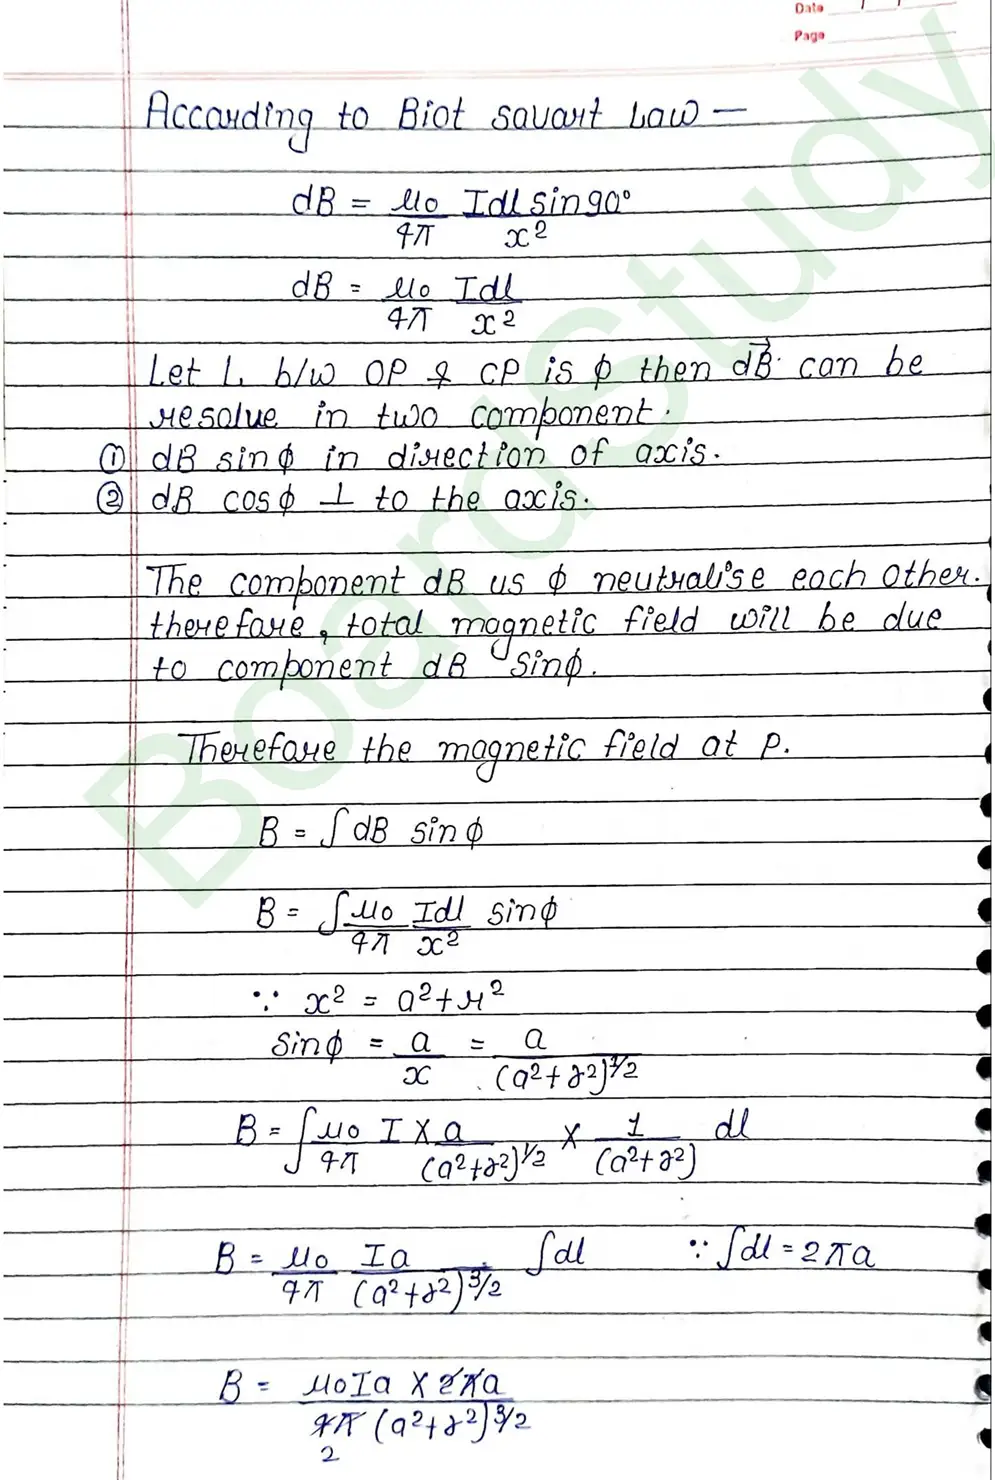 Date
Page
According to Biot savart Law —
dB = μ0/4π Idl sin90°/x²
dB = μ0/4π Idl/x²
Let L b/w OP & CP is ϕ then dB⃗ can be
resolve in two component.
① dB sinϕ in direction of axis.
② dB cosϕ ⊥ to the axis.
The component dB us ϕ neutralise each other.
therefore, total magnetic field will be due
to component dB sinϕ.
Therefore the magnetic field at P.
B = ∫dB sinϕ
B = ∫μ0/4π Idl/x² sinϕ
∵ x² = a²+r²
sinϕ = a/x = a/(a²+r²)^1/2
B = ∫μ0/4π I × a/(a²+r²)^1/2 × 1/(a²+r²) dl
B = μ0/4π Ia/(a²+r²)^3/2 ∫dl ∵ ∫dl = 2πa
B = μ0Ia × 2πa/4π(a²+r²)^3/2
2
BoardStudy